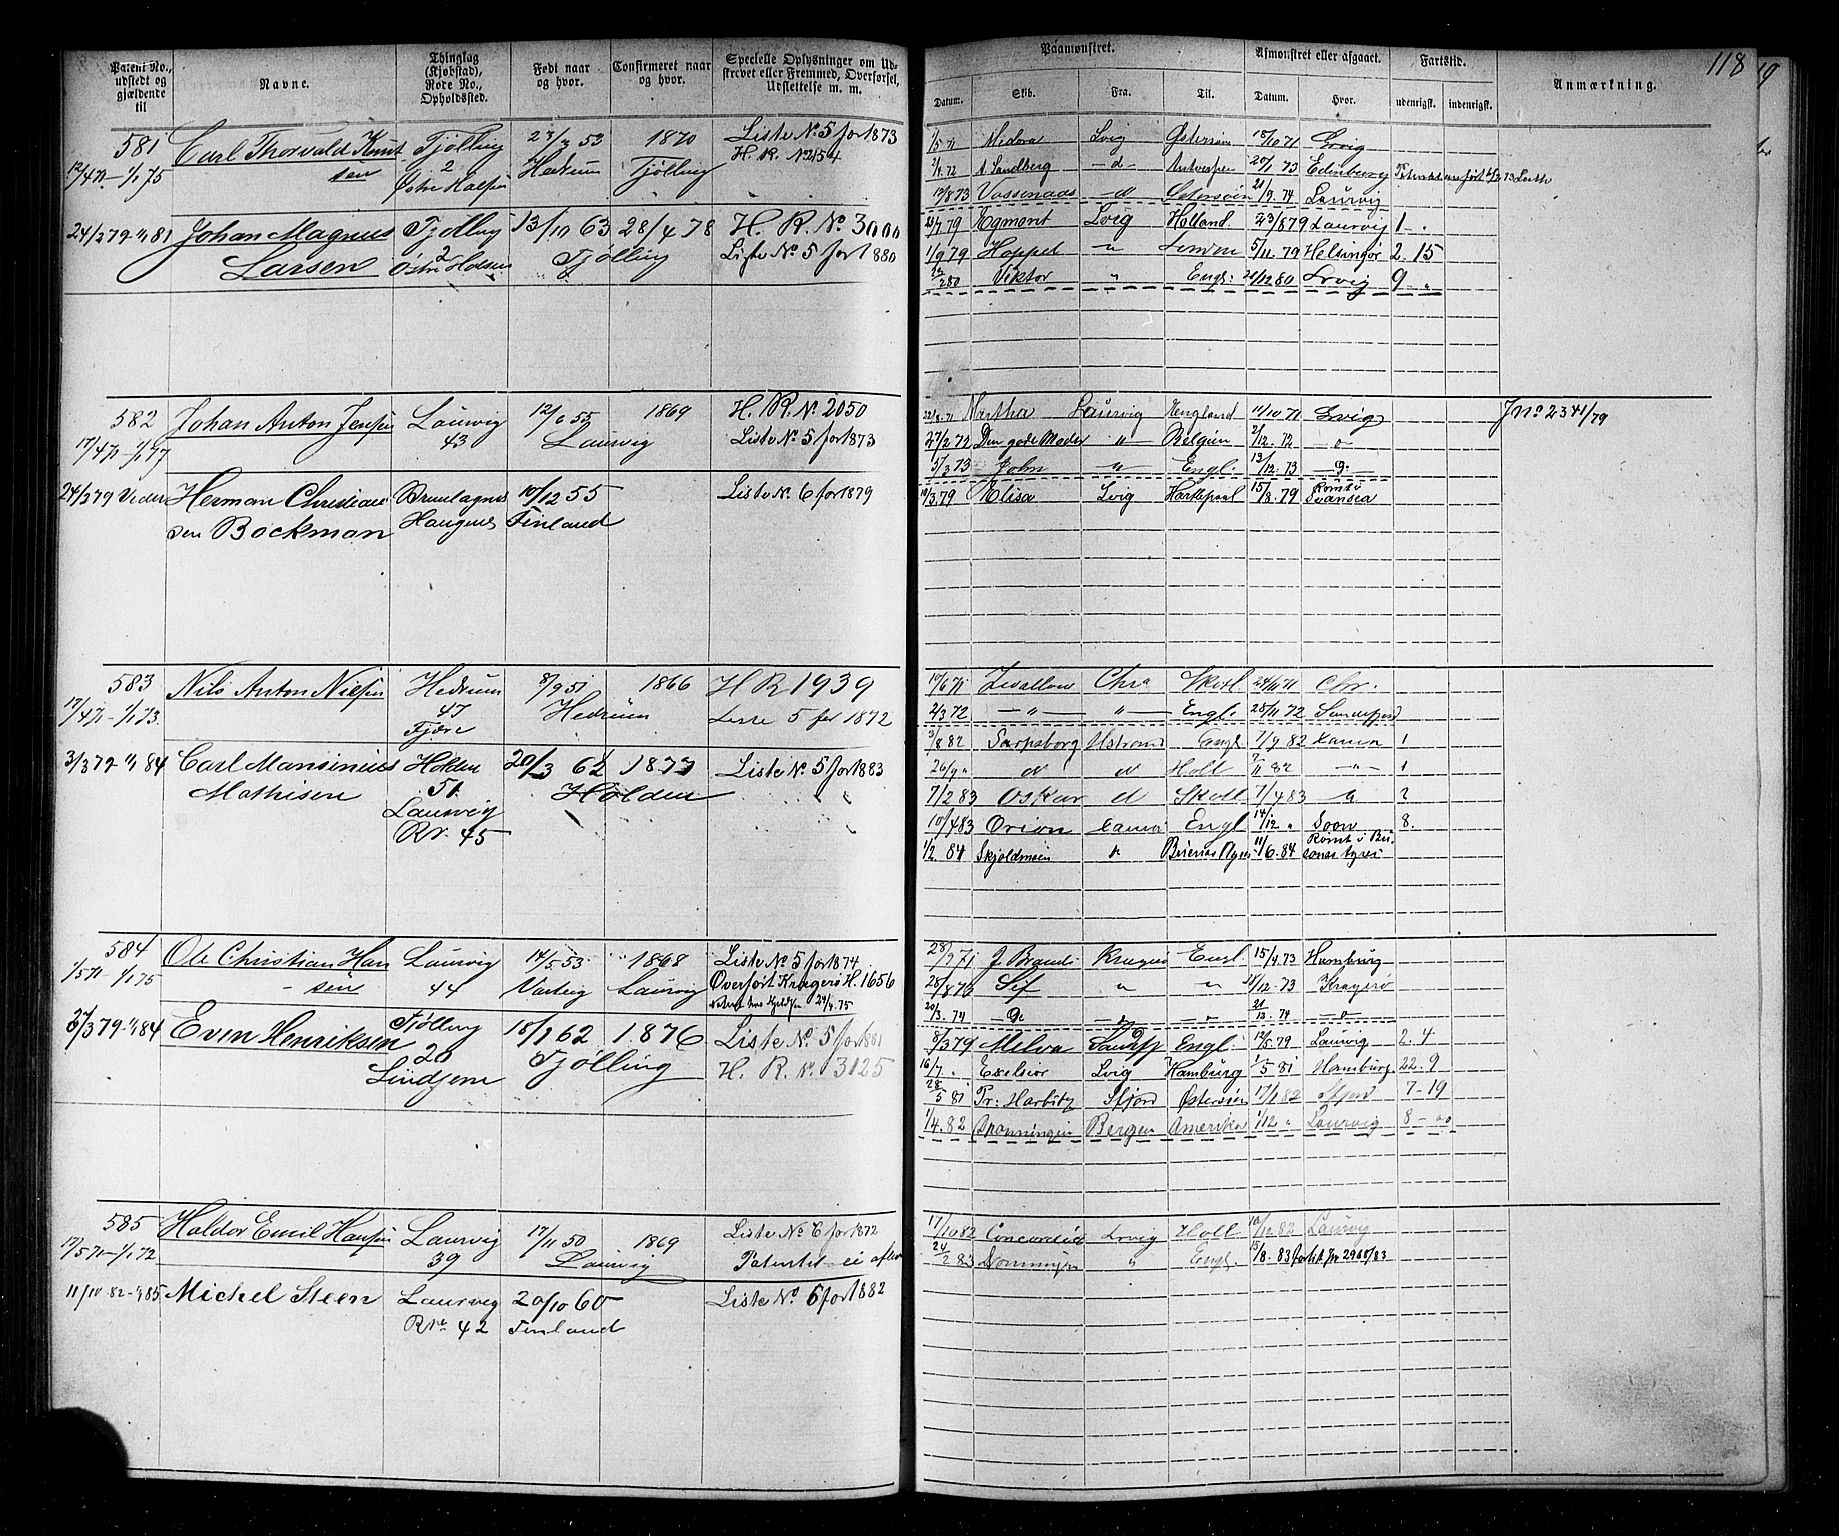 118
Patent No., udstedt og gjældende til
Navne.
Thinglag (Kjøbstad), Rode No., Opholdssted.
Født naar og hvor.
Confirmeret naar og hvor.
Specielle Oplysninger om Udskrevet eller Fremmed, Overførsel, Udslettelse m. m.
Paamønstret.
Afmønstret eller afgaaet.
Fartstid.
Anmærkning.
Datum.
Skib.
Fra.
Til.
Datum.
Hvor.
udenrigsk.
indenrigsk.
581 Carl Thorvald Knut Tjølling 23/3 53 1870 Liste No. 5 for 1873
17/4 71 - 1/1 75 sen 2 Hedrum Tjølling H. R. No 2154
Østre Halsen
24/3 79 - 1/1 81 Johan Magnus Tjølling 13/10 63 28/4 78 H. R. No. 3000
Larsen 2 Østre Halsen Tjølling Liste No 5 for 1880
1/5 71 Medora Lvig Østersøen 18/10 71 Lvig
1/4 72 A Sandberg - d - Antwerpen 20/1 73 Edinburg
12/8 73 Vossenaas - d Østersøen 21/9. 74 Laurvig
21/7 79 Egmont Lvig Holland 23/8 79 Laurvig 1 -
1/9 79 Hoppet " 5/11. 79 Helsingør 2. 15
280 Viktor " Engl. 21/12 80 Lrvig 9 "
582 Johan Anton Jensen Laurvig 12/6 55 1869 H. R. N. 2050
17/4 71 - 1/1 77 43 Laurvig Liste No 5 for 1873
24/3 79 Herman Christian Brunlagnes 10/12 55 Liste No. 6 for 1879
sen Bockman Haugenes Finland
22/8. 71 Martha Laurvig England 11/10. 71 Lvig J No 2341/79
27/2 72 Den gode Moder " Belgien 2/12. 72 - o
3/3 73 John - " - Engl. 13/12. 73 - o -
10/3 79 Elisa Lvig Hartlepool 15/8. 79 Rømt i Svansea
583 Nils Anton Nielsen Hedrum 8/9 51 1866 H R 1939
17/4 71 - 1/1 73. 47 Hedrum Liste 5 for 1872
Fjære
3/3 79 - 1/1 84 Carl Mansinius Holden 20/3 62 1877 Liste No. 5 for 1883
Mathisen 51 Holden
Laurvig
Rr. 45
19/6 71 Svallow Chra Skotl 24/10 71 Chr.
2/3 72 - " - " - Engl. 28/11 72 Sandefjord
3/8 82 Sarpsborg Ustrand Engl 7/9 82 1
26/9 " d d Holl 7/11 82 - " - 1
7/2 83 Oskar d Skotl 7/4 83 " 2
10/4 83 Orion Engl 14/12 " Soon 8.
1/2. 84 Skjoldmøen " 11/6. 84 Rømt i Buenos Ayres
584 Ole Christian Han Laurvig 14/5. 53 1868 Liste No 5 for 1874
1/5 71 - 1/1 75 sen 44 Laurvig Overført Kragerø H. 1656
24/4. 75
27/3 79 - 1/1 84 Even Henriksen Tjølling 18/1 62 1876 Liste No. 5 for 1881
20 Tjølling H. R. No. 3125
Lindjem
28/7 71 J Brandt Kragerø Engl 15/4 73 Hamburg
25/8 73 Sif " " 21/12. 73 Kragerø
20/3. 74 - D. - " - " 21/12. 74 - o -
8/3 79 Melva Sandefj Engl. 12/5. 79 Laurvig 2. 4
16/7. " Exelsior Lvig Hamburg 1/5 81 Hamburg 22. 9
28/5 81 Pr: Harbitz Sfjord Østersøen 17/1 82 Sfjord 7 - 19
1/4. 82 Dronningen Bergen Amerika 1/12 " Laurvig 8 - 00
585 Haldor Emil Hansen Laurvig 17/11 50 1869 Liste No 6 for 1872
17/5 71 - 1/1 72 39 Laurvig Patentet ei aflev
11/10 82 - 1/1 85 Michel Steen Laurvig 20/10 60 Liste No 6 for 1882
Rr. 42 Finland
17/10 82 Concordia Lrvig Holl 10/12. 82 Laurvig
24/2 83 Dronningen " Engl. 15/8. 83